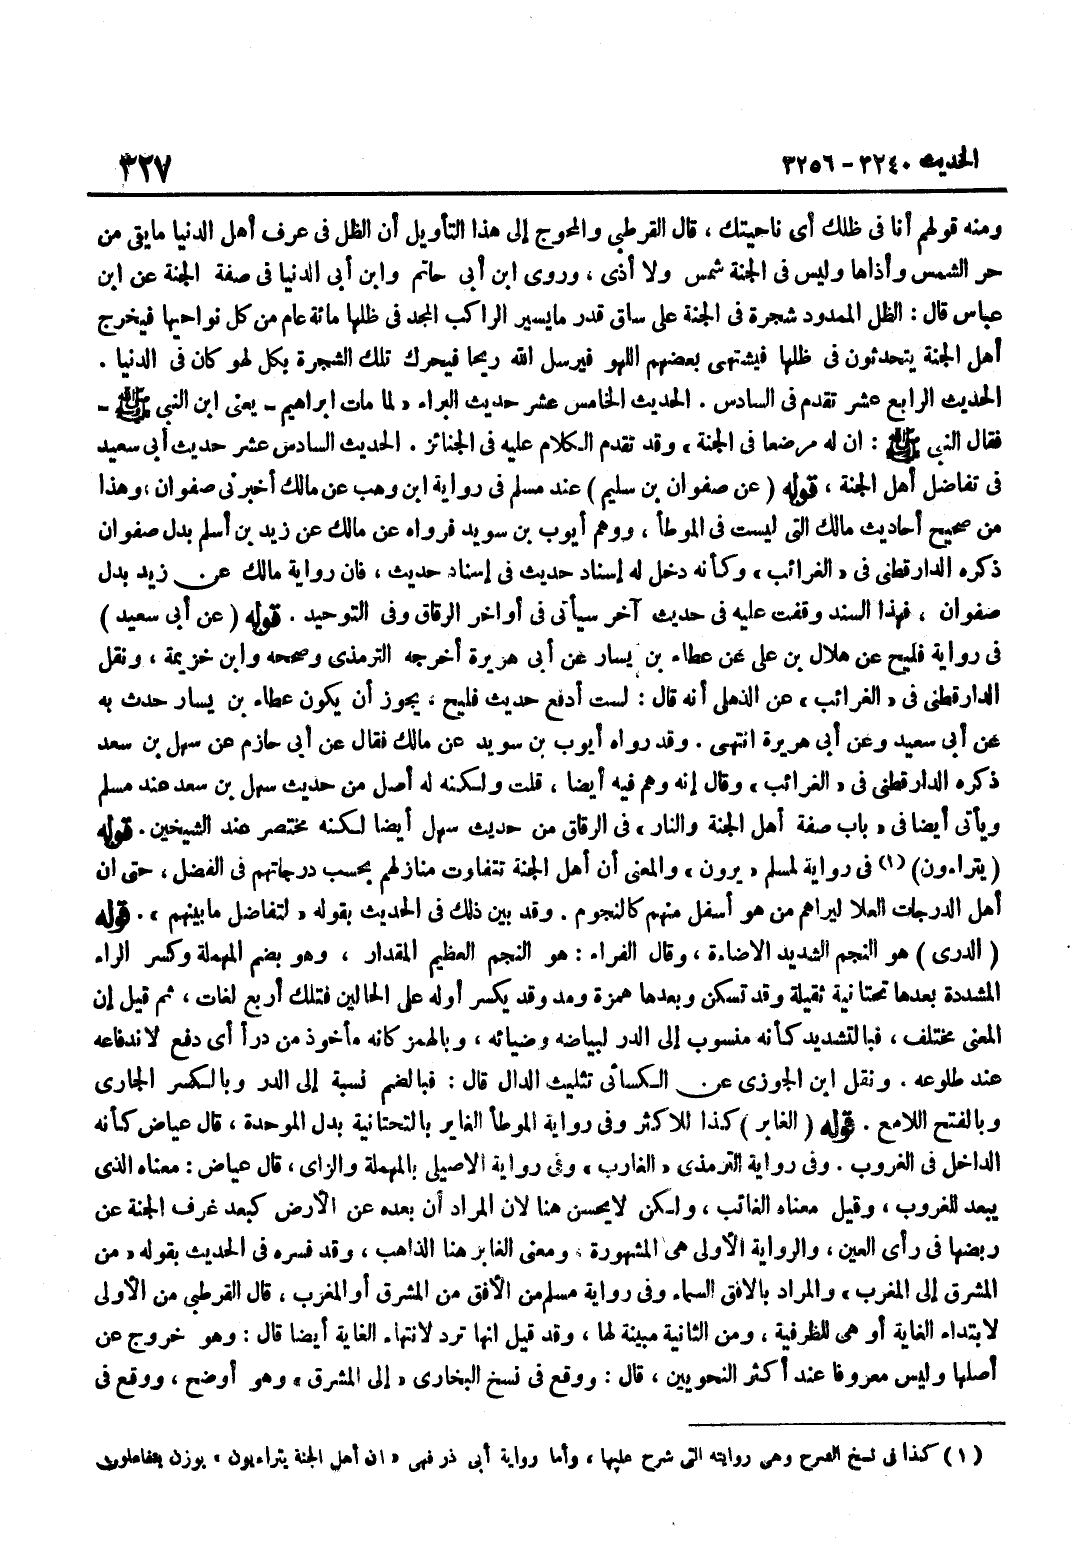 الحديث ٣٢٤٠ - ٣٢٥٦
٣٢٧
ومنه قولهم أنا فى ظلك أى ناحيتك ، قال القرطبي والمحوج إلى هذا التأويل أن الظل فى عرف أهل الدنيا مايقى من
حر الشمس وأذاها وليس فى الجنة شمس ولا أذى ، وروى ابن أبى حاتم وابن أبى الدنيا فى صفة الجنة عن ابن
عباس قال : الظل الممدود شجرة فى الجنة على ساق قدر مايسير الراكب المجد فى ظلها مائة عام من كل نواحيها فيخرج
أهل الجنة يتحدثون فى ظلها فيشتهى بعضهم اللهو فيرسل الله ريحا فيحرك تلك الشجرة بكل لهو كان فى الدنيا .
الحديث الرابع عشر تقدم فى السادس . الحديث الخامس عشر حديث البراء « لما مات ابراهيم – يعنى ابن النبي ﷺ –
فقال النبي ﷺ : ان له مرضعا فى الجنة » وقد تقدم الكلام عليه فى الجنائز . الحديث السادس عشر حديث أبى سعيد
فى تفاضل أهل الجنة ، قوله ( عن صفوان بن سليم ) عند مسلم فى رواية ابن وهب عن مالك أخبرنى صفوان ، وهذا
من صحيح أحاديث مالك التى ليست فى الموطأ ، ووهم أيوب بن سويد فرواه عن مالك عن زيد بن أسلم بدل صفوان
ذكره الدارقطنى فى « الغرائب » وكأنه دخل له إسناد حديث فى إسناد حديث ، فان رواية مالك عن زيد بدل
صفوان ، فهذا السند وقفت عليه فى حديث آخر سيأتى فى أواخر الرقاق وفى التوحيد . قوله ( عن أبى سعيد )
فى رواية فليح عن هلال بن على عن عطاء بن يسار عن أبى هريرة أخرجه الترمذى وصححه وابن خزيمة ، ونقل
الدارقطنى فى « الغرائب » عن الذهلى أنه قال : لست أدفع حديث فليح ، يجوز أن يكون عطاء بن يسار حدث به
عن أبى سعيد وعن أبى هريرة انتهى . وقد رواه أيوب بن سويد عن مالك فقال عن أبى حازم عن سهل بن سعد
ذكره الدارقطنى فى « الغرائب » وقال إنه وهم فيه أيضا ، قلت ولكنه له أصل من حديث سهل بن سعد عند مسلم
ويأتى أيضا فى « باب صفة أهل الجنة والنار » فى الرقاق من حديث سهل أيضا لكنه مختصر عند الشيخين . قوله
( يتراءون ) (١) فى رواية لمسلم « يرون » والمعنى أن أهل الجنة تتفاوت منازلهم بحسب درجاتهم فى الفضل ، حتى ان
أهل الدرجات العلا ليراهم من هو أسفل منهم كالنجوم . وقد بين ذلك فى الحديث بقوله « لتفاضل مابينهم » . قوله
( الدرى ) هو النجم الشديد الاضاءة ، وقال الفراء : هو النجم العظيم المقدار ، وهو بضم المهملة وكسر الراء
المشددة بعدها تحتانية ثقيلة وقد تسكن وبعدها همزة ومد وقد يكسر أوله على الحالين فتلك أربع لغات ، ثم قيل إن
المعنى مختلف ، فبالتشديد كأنه منسوب إلى الدر لبياضه وضيائه ، وبالهمز كانه مأخوذ من درأ أى دفع لاندفاعه
عند طلوعه . ونقل ابن الجوزى عن الكسائى تثليث الدال قال : فبالضم نسبة إلى الدر وبالكسر الجارى
وبالفتح اللامع . قوله ( الغابر ) كذا للاكثر وفى رواية الموطأ الغاير بالتحتانية بدل الموحدة ، قال عياض كأنه
الداخل فى الغروب . وفى رواية الترمذى « الغارب » وفى رواية الاصيلى بالمهملة والزاى ، قال عياض : معناه الذى
يبعد للغروب ، وقيل معناه الغائب ، ولكن لايحسن هنا لان المراد أن بعده عن الأرض كبعد غرف الجنة عن
ربضها فى رأى العين ، والرواية الأولى هى المشهورة ، ومعنى الغابر هنا الذاهب ، وقد فسره فى الحديث بقوله « من
المشرق إلى المغرب » والمراد بالافق السماء وفى رواية مسلم من الأفق من المشرق أو المغرب ، قال القرطبي من الأولى
لابتداء الغاية أو هى للظرفية ، ومن الثانية مبينة لها ، وقد قيل انها ترد لانتهاء الغاية أيضا قال : وهو خروج عن
أصلها وليس معروفا عند أكثر النحويين ، قال : ووقع فى نسخ البخارى « إلى المشرق » وهو أوضح ، ووقع فى
( ١ ) كذا فى نسخ الشرح وهى روايته التى شرح عليها ، وأما رواية أبى ذر فهى « ان أهل الجنة يتراءيون » بوزن يتفاعلون